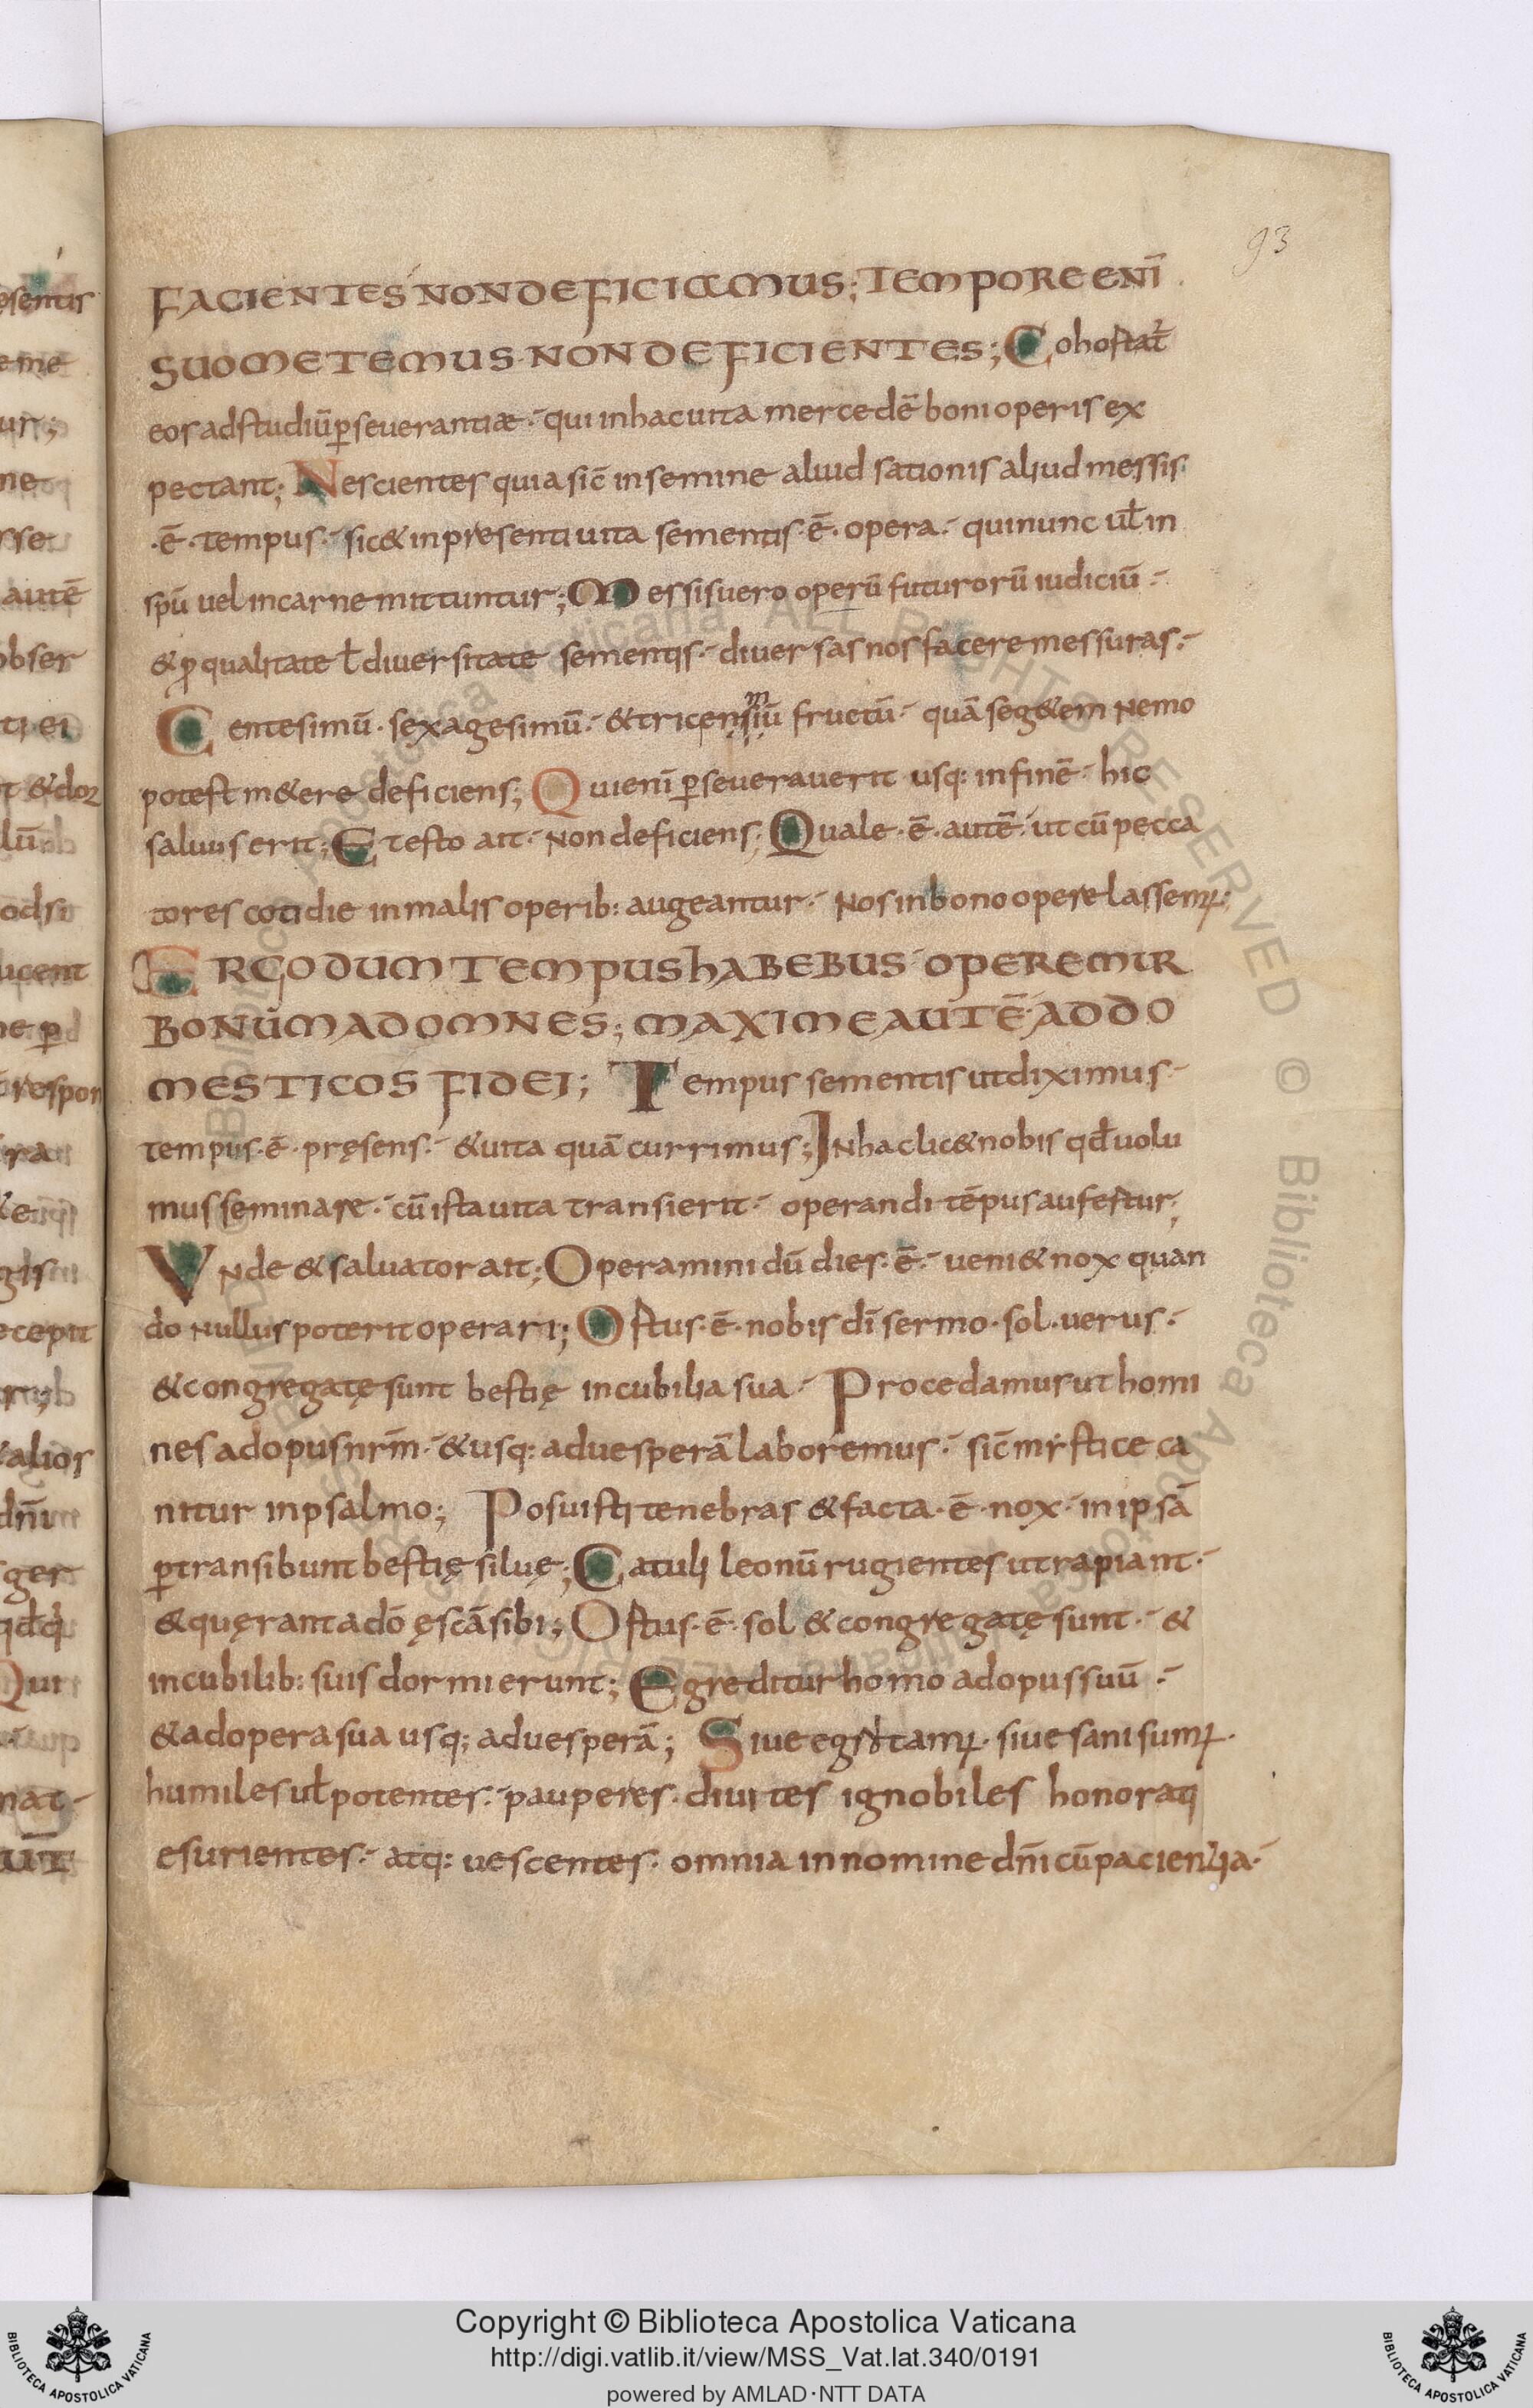 93
FACIENTES NON DEFICIAMUS; TEMPORE ENĪ
SUO METEMUS· NON DEFICIENTES; Cohoſtat᷑
eos ad studiū ꝑseuerantiæ·- qui in hac uita mercedē boni operis ex
pectant; Nescientes quia sic̄ in semine aliud sationis aliud messis
·ē· tempus·- sic & in presenti uita sementis·ē· opera·- qui nunc ul̄ in
spū uel in carne mittuntur; Messis uero operū futurorū iudiciū·-
& ꝓ qualitate ł diuersitate sementis·- diuersas nos facere messuras·-
Centesimū· sexagesimū·- & tricensimū fructū·- quā seg&em nemo
potest m&ere deficiens; Qui enī ꝑseuerauerit usq: in finē·- hic
saluus erit; Et esto ait·- non deficiens; Quale·ē· autē· ut cū pecca
tores cotidie in malis operib: augeantur·- Nos in bono opere lassemꝰ;
ERGO DUM TEMPUS HABEBUS·- OPEREMUR
BONUM AD OMNES; MAXIME AUTĒ AD DO
MESTICOS FIDEI; Tempus sementis ut diximus·-
tempus·ē· pręsens·- & uita quā currimus; In hac lic& nobis qđ uolu
mus seminare·- cū ista uita transierit·- operandi tēpus aufertur;
Vnde & saluator ait; Operamini dū dies·ē·- ueni& nox quan
do nullus poterit operari; Ortus·ē· nobis dī sermo· sol· uerus·-
& congregatę sunt bestię in cubilia sua·- Procedamus ut homi
nes ad opus nrm̄·- & usq: ad uesperā laboremus·- sic̄ mẏstice ca
nitur in psalmo; Posuisti tenebras & facta·ē· nox·- in ipsā
ꝑtransibunt bestię siluę; Catuli leonū rugientes ut rapiant·-
& quęrant a dō ęscā sibi; Ortus·ē· sol & congregatę sunt·- &
in cubilib: suis dormierunt; Egreditur homo ad opus suū·-
& ad opera sua usq; ad uesperā; Siue egrotamꝰ· siue sani sumꝰ·
humiles ul̄ potentes·- pauperes· diuites ignobiles honorati
esurientes·- atq: uescentes· omnia in nomine dn̄i cū paciencia·-
Copyright © Biblioteca Apostolica Vaticana
http://digi.vatlib.it/view/MSS_Vat.lat.340/0191
powered by AMLAD·NTT DATA